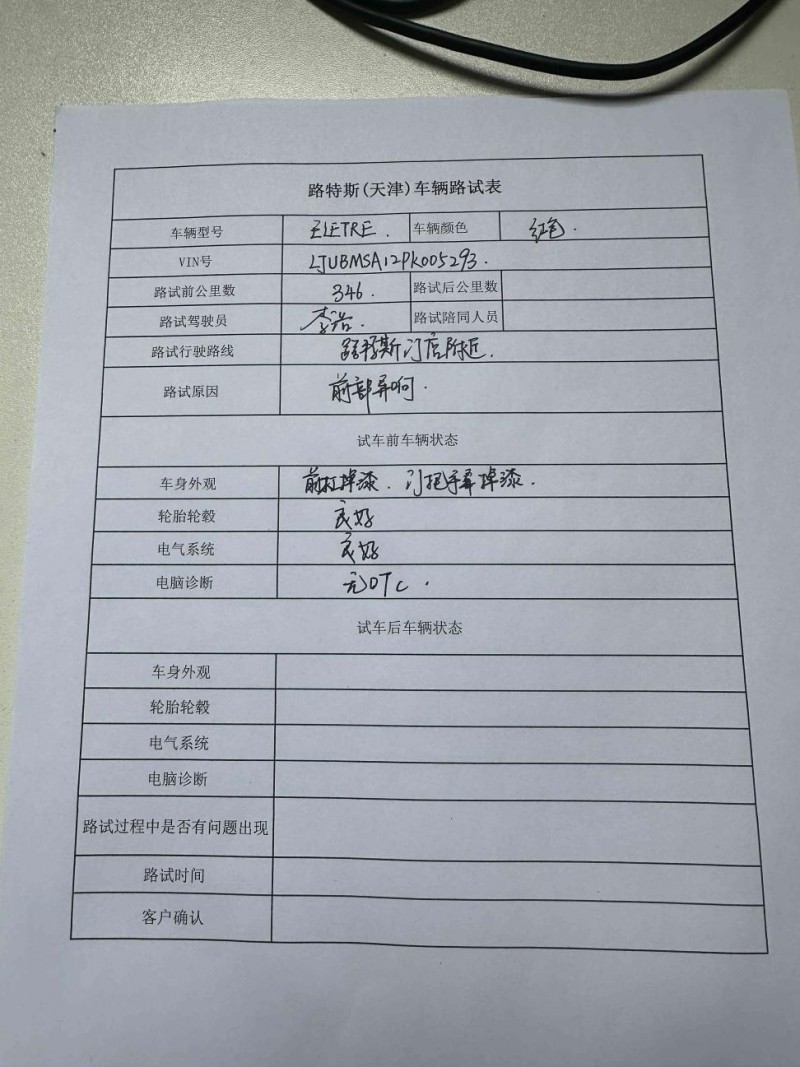 路特斯(天津)车辆路试表
车辆型号 ELETRE. 车辆颜色 红色.
VIN号 LJUBMSA12PK005293.
路试前公里数 346. 路试后公里数
路试驾驶员 李浩. 路试陪同人员
路试行驶路线 路特斯门店附近.
路试原因 前部异响.
试车前车辆状态
车身外观 前杠掉漆. 门把手掉漆.
轮胎轮毂 良好
电气系统 良好
电脑诊断 无DTC.
试车后车辆状态
车身外观
轮胎轮毂
电气系统
电脑诊断
路试过程中是否有问题出现
路试时间
客户确认